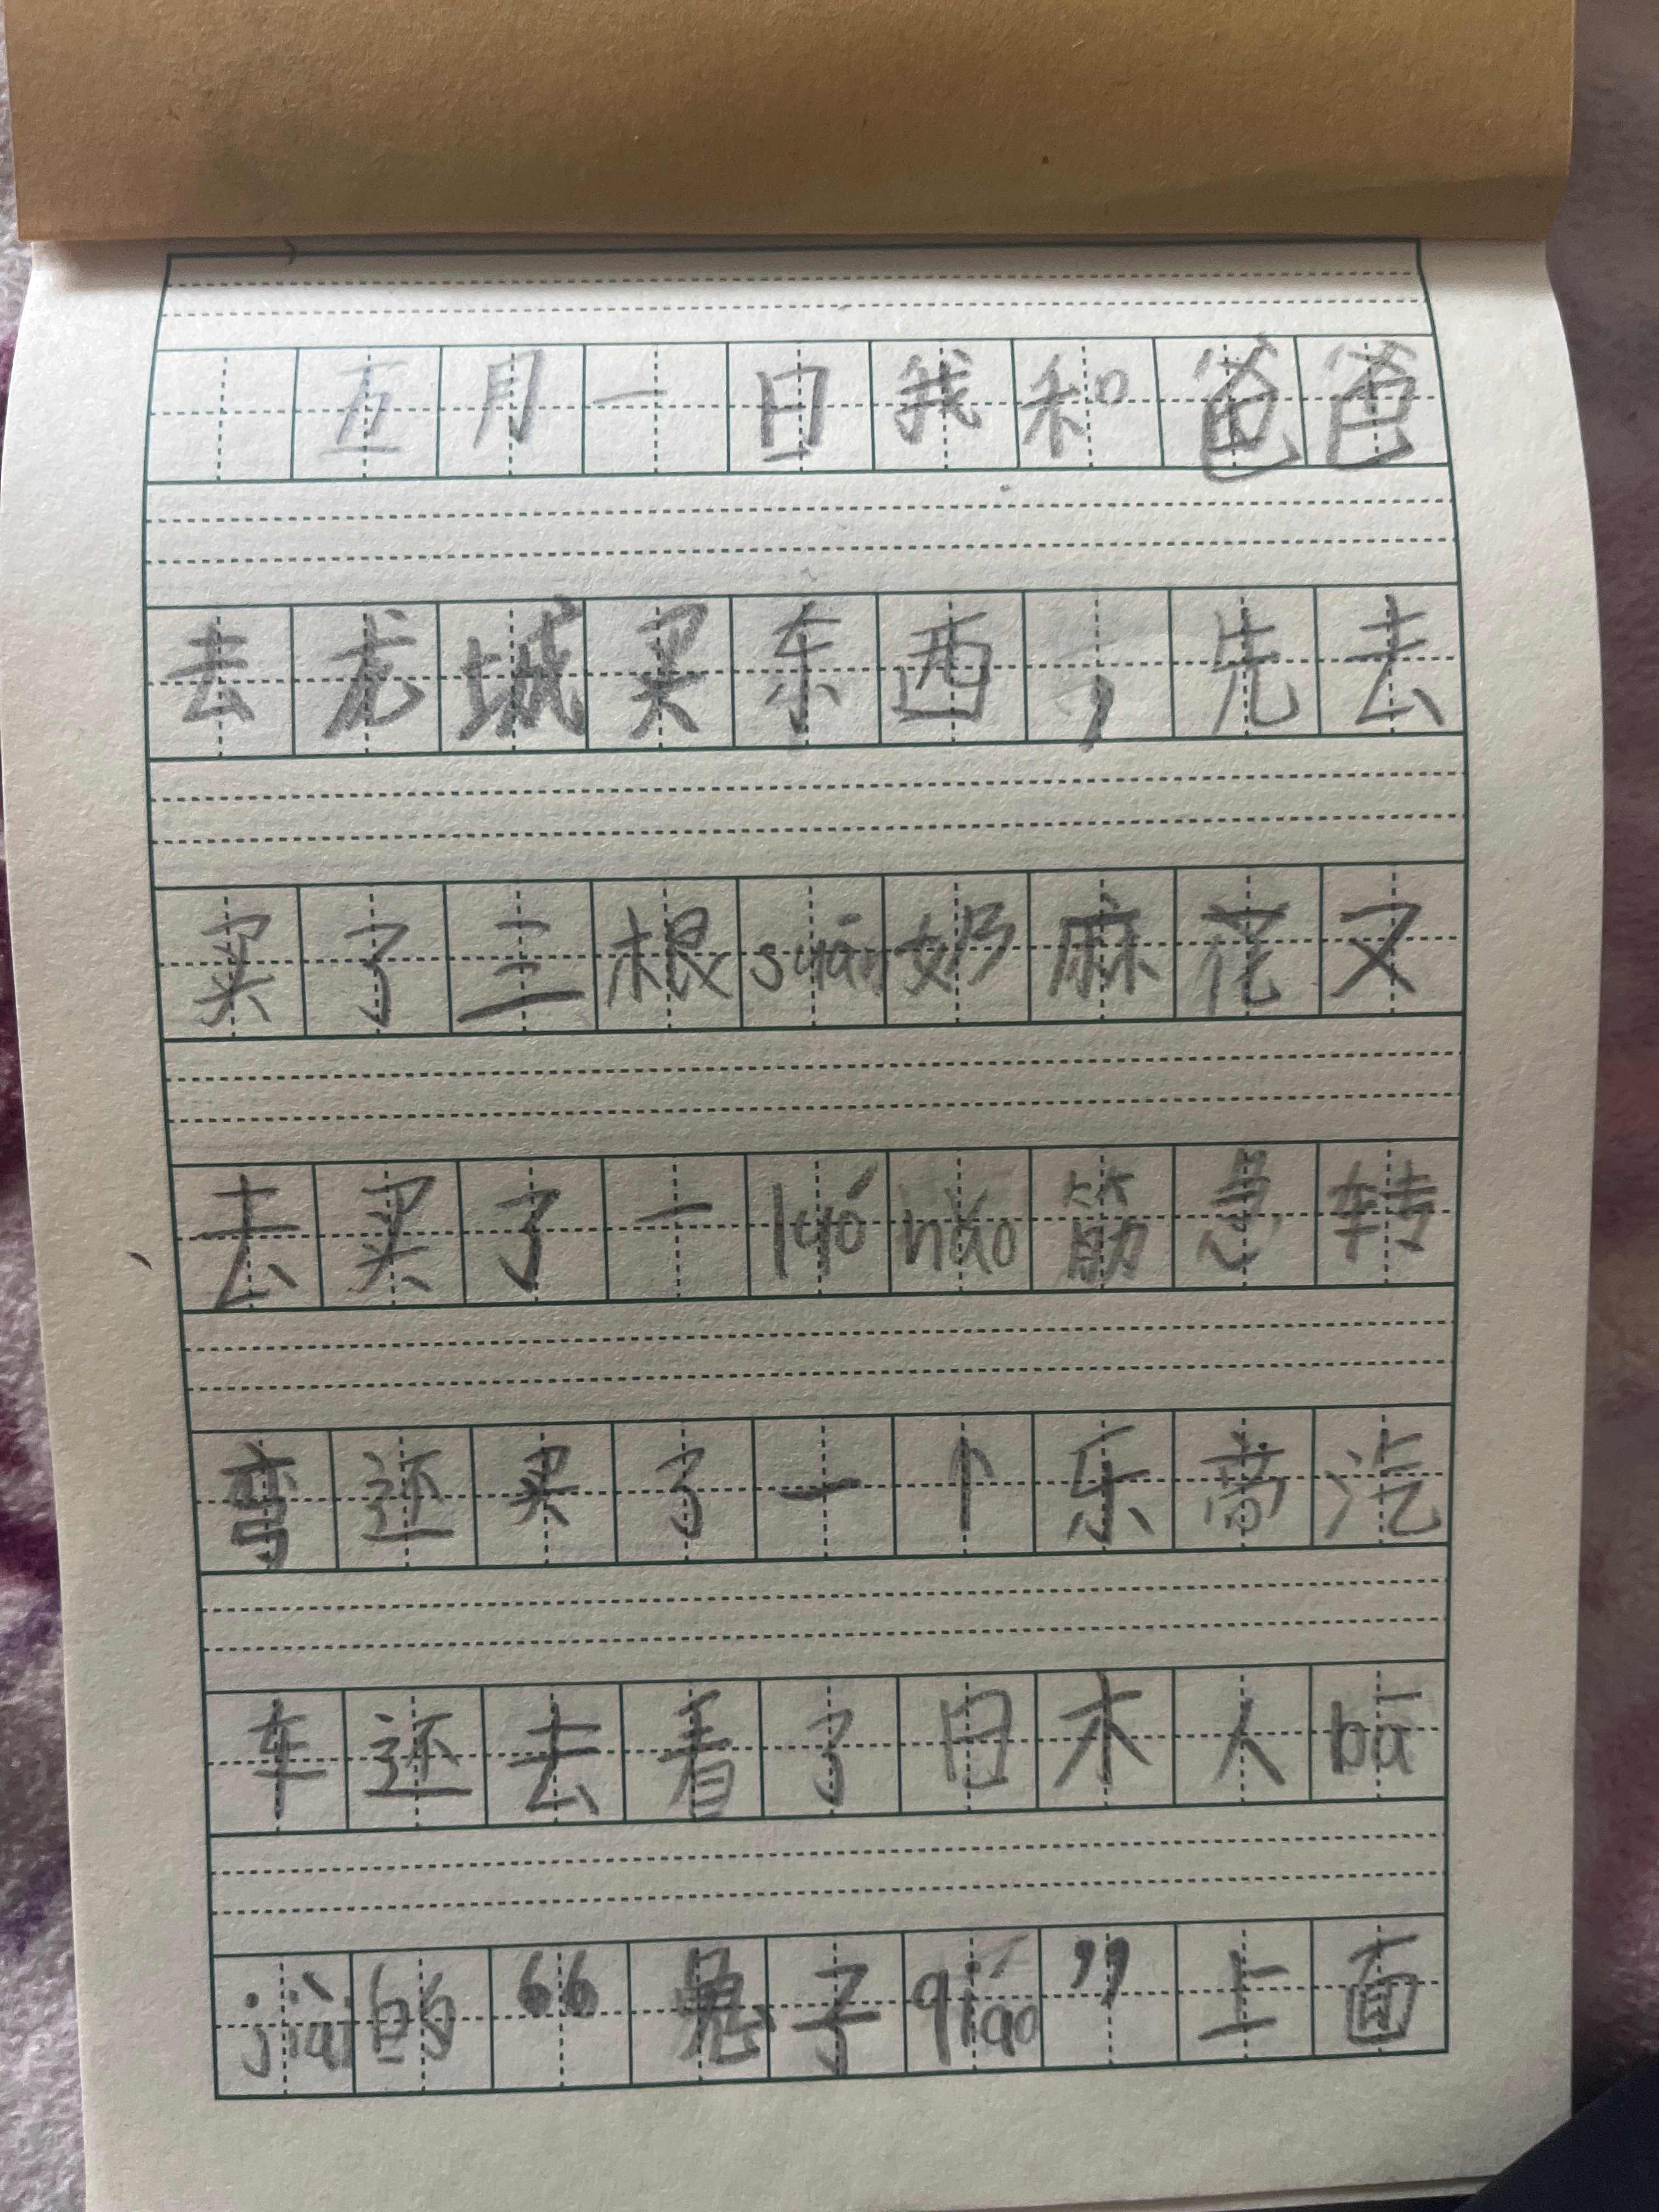 五月一日我和爸爸
去龙城买东西，先去
买了三根suān奶麻花又
去买了一lyó nǎo筋急转
弯还买了一个乐高汽
车还去看了日木人bā
jiàn的“鬼子qiáo”上面